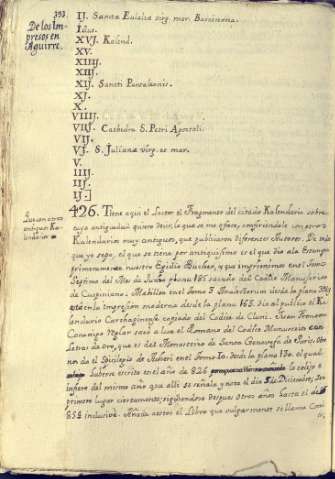 393.
De los Im-
presos en
Aguirre.
II. Sancta Eulalia virg. mar. Barcinona.
Idus.
XVI. Kalend.
XV.
XIIII.
XIII.
XII. Sancti Pantaleonis.
XI.
X.
VIIII.
VIII. Cathedra S. Petri Apostoli.
VII.
VI. S. Juliana virg. et mar.
V.
IIII.
III.
II.
426. Tiene aqui el Lector el Fragmento del citado Kalendario sobre
cuya antiguedad quiero decir lo que se me ofrece, confiriendole con otros
Kalendarios muy antiguos, que publicaron diferentes Autores. De los
que yo sepa, el que se tiene por antiquissimo es el que dio a la Estampa
primeramente nuestro Egidio Bucher, y que imprimieron en el Tomo
Septimo del Mes de Junio sacado del Codice Manuscrito
de Cuspiniano. Mabillon en el tomo 3 Analectorum desde la plana
esta en la impression moderna desde la plana 163. dio al publico el Ka-
lendario Carthaginense copiado del Codice de Cluni. Juan Fronton
Canonigo Reglar sacó a luz el Romano del Codice Manuscrito con
Letras de oro, que es del Monasterio de Santa Genovefa de Paris. Otro
en el tomo 10. desde la plana 130. el qual
haberse escrito en el año de 826 lo colijo e
infiere del mismo año que alli se señala, y noto el dia 5 de Diciembre, en
primero lugar ciertamente; siguiendose despues otros años hasta el de
858 inclusive. Añada a estos el Libro que vulgarmente se llama